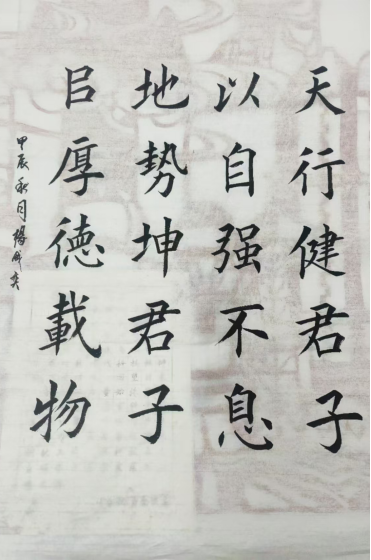 天行健君子
以自强不息
地勢坤君子
㠯厚德載物
甲辰秋月楊